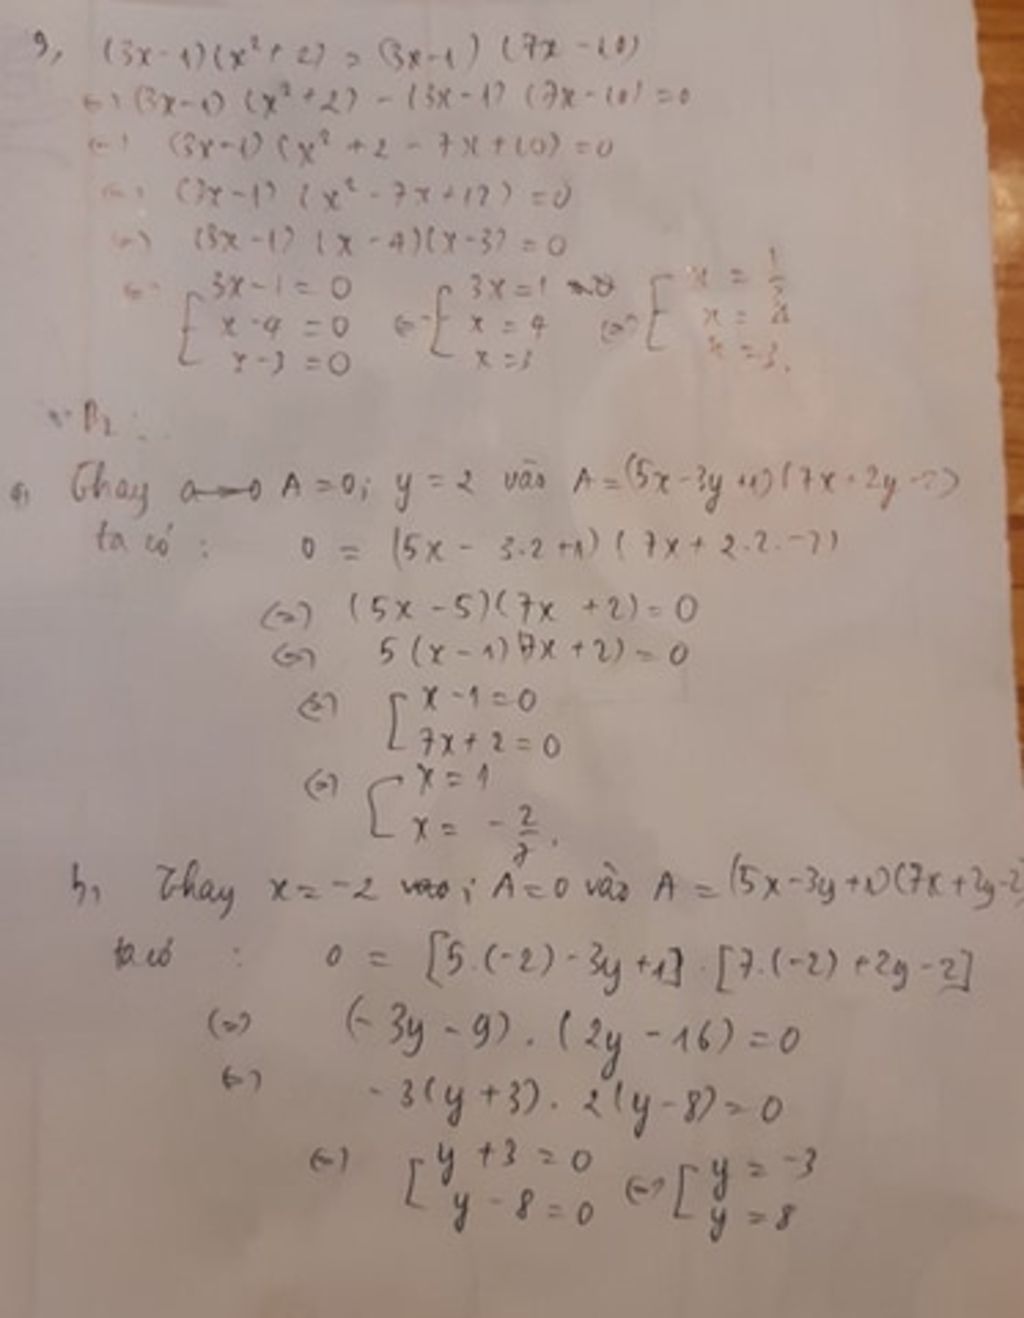 9, (3x-1)(x²+2) = (3x-1)(7x-10)
<=> (3x-1)(x²+2) - (3x-1)(7x-10) = 0
<=> (3x-1)(x²+2-7x+10) = 0
<=> (3x-1)(x²-7x+12) = 0
<=> (3x-1)(x-4)(x-3) = 0
<=> [3x-1=0 <=> [3x=1 <=> [x = 1/3
x-4=0 x=4 x=4
x-3=0 x=3 x=3.
B2:
Thay A=0; y=2 vào A=(5x-3y+1)(7x+2y-2)
ta có: 0 = (5x-3.2+1)(7x+2.2-2)
<=> (5x-5)(7x+2)=0
<=> 5(x-1)(7x+2)=0
<=> [x-1=0
7x+2=0
<=> [x=1
x= -2/7.
b, Thay x=-2; A=0 vào A = (5x-3y+1)(7x+2y-2)
ta có: 0 = [5.(-2)-3y+1].[7.(-2)+2y-2]
<=> (-3y-9).(2y-16)=0
<=> -3(y+3).2(y-8)=0
<=> [y+3=0 <=> [y=-3
y-8=0 y=8